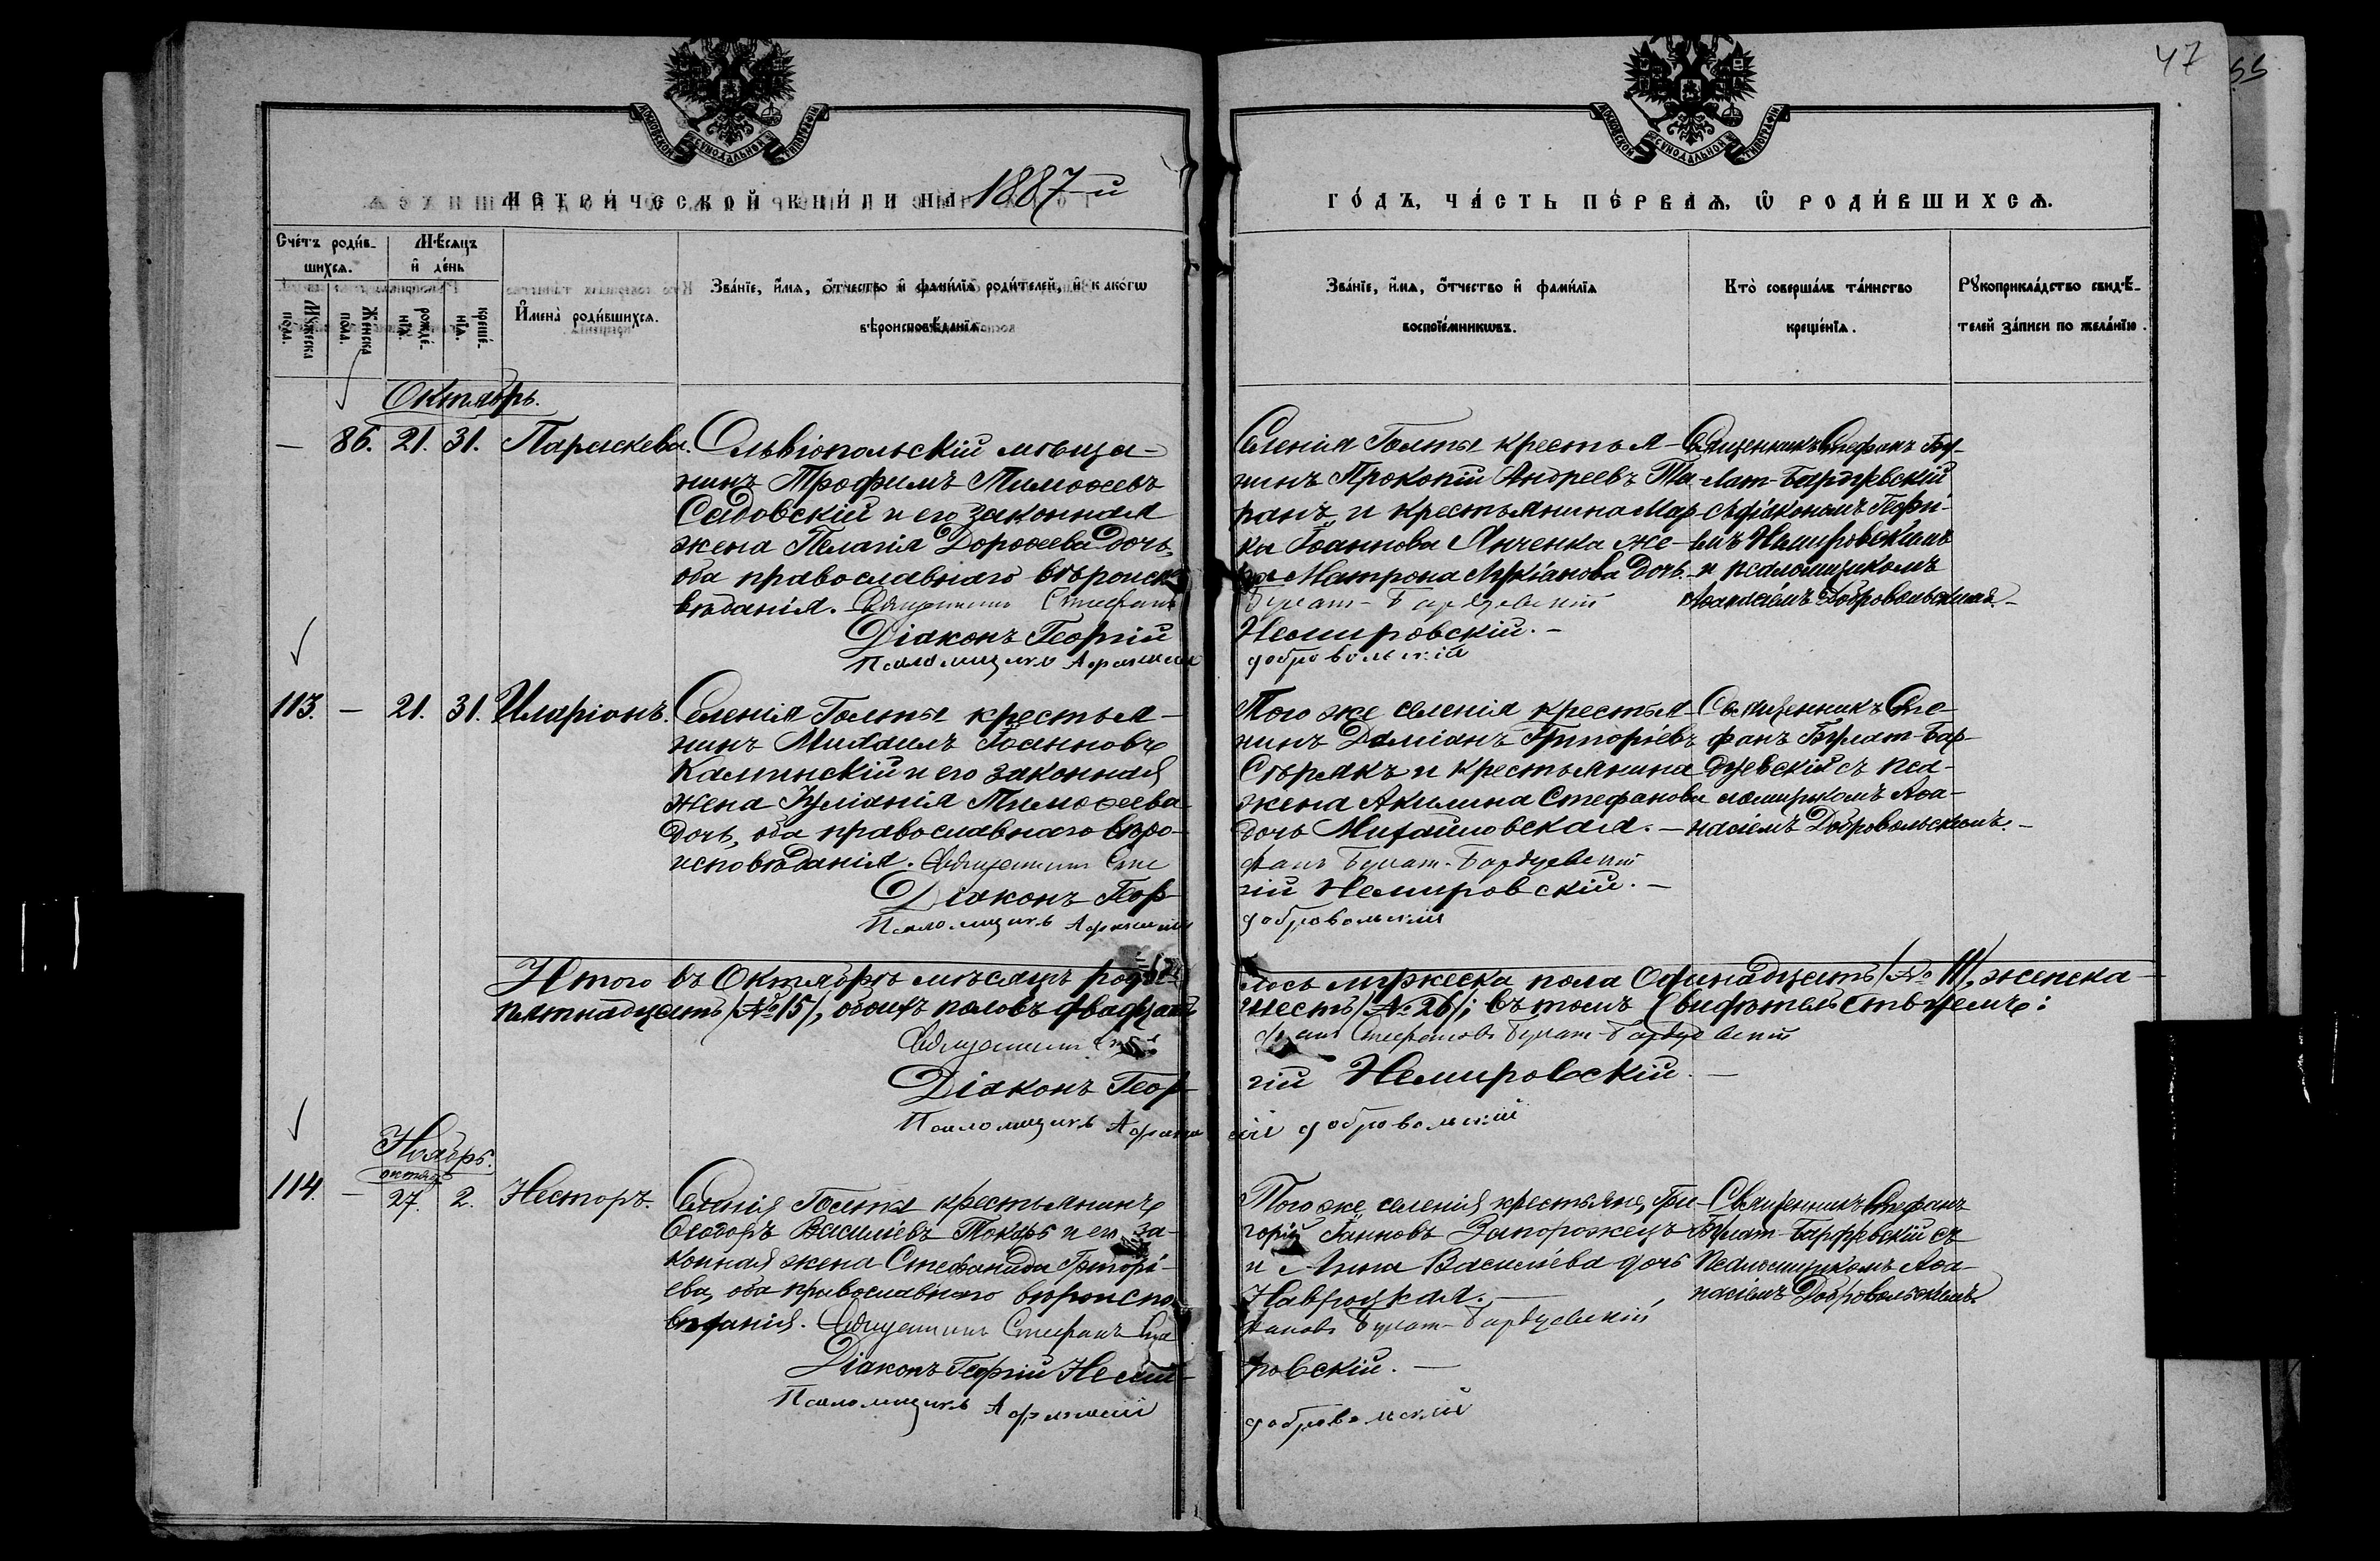 47
55
МОСКОВСКОЙ СѴНОДАЛЬНОЙ ТИПОГРАФІИ
МОСКОВСКОЙ СѴНОДАЛЬНОЙ ТИПОГРАФІИ
МЕТРИ́ЧЕСКОЙ КНИ́ГИ НА 1887-й
ГО́ДЪ, ЧА́СТЬ ПЕ́РВАѦ, Ѡ҆ РОДИ́ВШИХСѦ.
Сче́тъ роди́в-
шихсѧ.
Мꙋжеска пола.
Женска пола.
Мѣ́сѧцъ
и҆ де́нь
рожде́-
нїѧ.
креще́-
нїѧ.
И҆мена̀ роди́вшихсѧ.
Зва́нїе, и҆́мѧ, ѻ҆́тчество и҆ фами́лїѧ роди́телей, и҆ како́гѡ
вѣроисповѣ́данїѧ.
Зва́нїе, и҆́мѧ, ѻ҆́тчество и҆ фами́лїѧ
воспрїе́мникѡвъ.
Кто̀ соверша́лъ та́инство
креще́нїѧ.
Рꙋкоприкла́дство свидѣ́-
телей за́писи по жела́нїю.
Октябрь.
— 86. 21. 31. Параскева.
Ольвіопольскій мѣща-
нинъ Трофимъ Тимоѳеевъ
Садовскій и его законная
жена Пелагія Дороѳеева дочь,
оба православнаго вѣроиспо-
вѣданія. Священникъ Стефанъ
Діаконъ Георгій
Псаломщикъ Афанасій
Селенія Голты крестья-
нинъ Прокопій Андреевъ Та
ранъ, и крестьянина Мар
ка Іоаннова Янченка же-
на Матрона Лукіанова дочь.
Булат-Бардзевскій
Немировскій. —
Добровольскій
Священникъ Стефанъ Бу-
лат-Бардзевскій
съ діакономъ Георгі-
емъ Немировскимъ
и псаломщикомъ
Аѳанасіемъ Добровольскимъ. —
113. — 21. 31. Иларіонъ.
Селенія Голты крестья-
нинъ Михаилъ Іоанновъ
Калинскій и его законная
жена Іуліанія Тимоѳеева
дочь, оба православнаго вѣро-
исповѣданія. Священникъ Сте
Діаконъ Геор-
Псаломщикъ Афанасій
Того же селенія крестья-
нинъ Даміанъ Григоріевъ
Сѣрякъ и крестьянина
жена Акилина Стефанова
дочь Михайловская. —
фанъ Булат-Бардзевскій
гій Немировскій. —
Добровольскій
Священникъ Сте-
фанъ Булат-Бар-
дзевскій съ пса-
ломщикомъ Аѳа-
насіемъ Добровольскимъ. —
Итого въ Октябрѣ мѣсяцѣ роди-
лось мужеска пола Одинадцать /№ 11/, женска —
пятнадцать /№ 15/, обоихъ половъ двадцать
шесть /№ 26/; въ томъ свидѣтельствуемъ:
Священникъ Сте
фанъ Стефановъ Булат-Бардзевскій
Діаконъ Геор
гій Немировскій. —
Псаломщикъ Афана
сій Добровольскій
Ноябрь.
октяб.
114. — 27. 2. Несторъ.
Селенія Голты крестьянинъ
Ѳеодоръ Васильевъ Токарь и его за-
конная жена Стефанида Григорі-
ева, оба православнаго вѣроиспо-
вѣданія. Священникъ Стефанъ Сте
Діаконъ Георгій Неми-
Псаломщикъ Афанасій
Того же селенія крестьяне, Гри-
горій Іоанновъ Запорожецъ
и Анна Васильева дочь
Навроцкая. —
фановъ Булат-Бардзевскій
ровскій. —
Добровольскій
Священникъ Стефанъ
Булат-Бардзевскій съ
псаломщикомъ Аѳа-
насіемъ Добровольскимъ